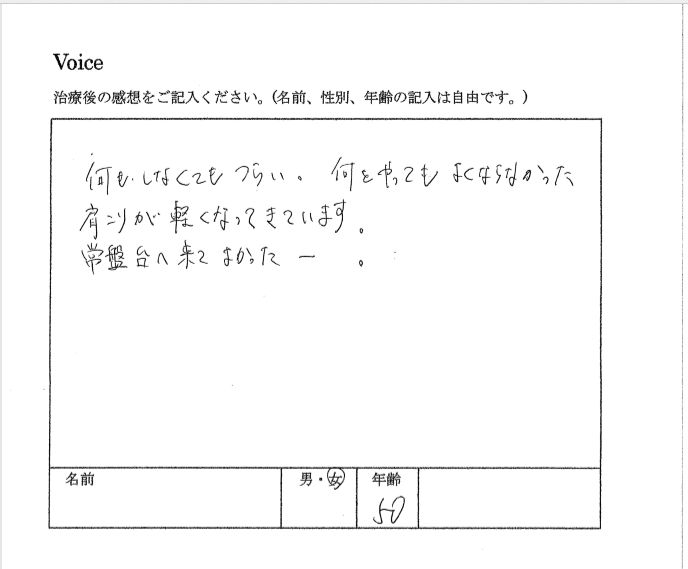 Voice
治療後の感想をご記入ください。(名前、性別、年齢の記入は自由です。)
何もしなくてもつらい。何をやってもよくならなかった
肩こりが軽くなってきています。
常盤台へ来てよかったー。
名前
男・女
年齢
50